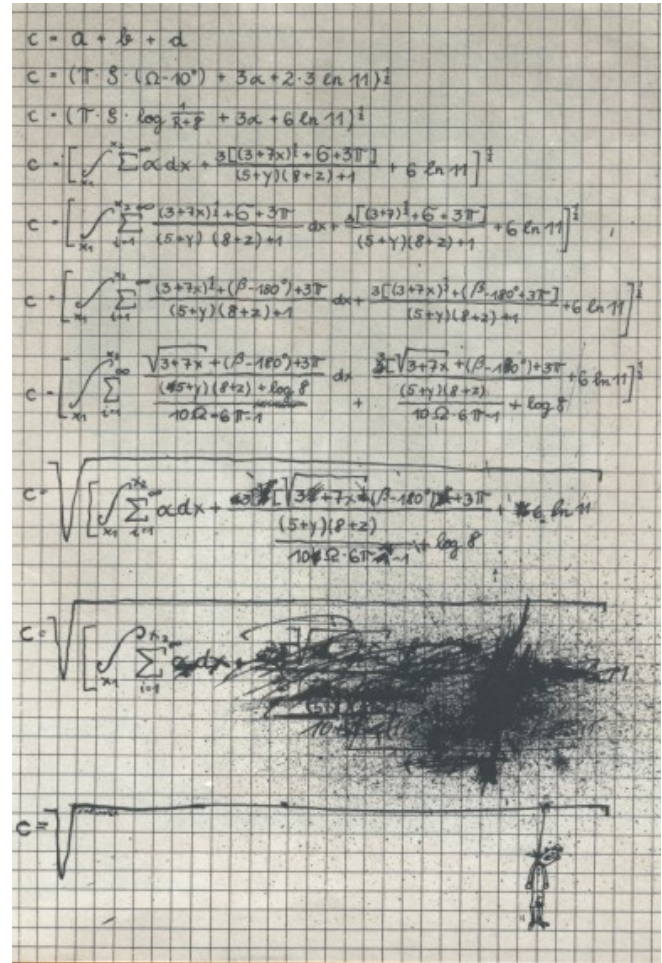 c = a + b + d
c = (π · 8 · (Ω-10°) + 3α + 2 · 3 ln 11)^½
c = (π · 8 · log 1/(R+8) + 3α + 6 ln 11)^½
c = [∫x₁^x₂ Σ^∞ α dx + 3[(3+7x)^½ + 6 + 3π] / (5+y)(8+z)+1 + 6 ln 11]^½
c = [∫x₁^x₂ Σi=1^∞ (3+7x)^½ + 6 + 3π / (5+y)(8+z)+1 dx + 3[(3+7)^½ + 6 + 3π] / (5+y)(8+z)+1 + 6 ln 11]^½
c = [∫x₁^x₂ Σi=1^∞ (3+7x)^½ + (β-180°)+3π / (5+y)(8+z)+1 dx + 3[(3+7x)^½ + (β-180°+3π] / (5+y)(8+z)+1 + 6 ln 11]^½
c = [∫x₁^x₂ Σi=1^∞ √3+7x + (β-180°)+3π / (5+y)(8+z) + log 8 / 10Ω-6π-1 dx + 3[√3+7x + (β-180°)+3π / (5+y)(8+z) / 10Ω·6π-1 + log 8 + 6 ln 11]^½
c = √[∫x₁^x₂ Σi=1^∞ α dx + 3[√3+7x (β-180°)+3π / (5+y)(8+z) / 10Ω·6π-1 + log 8 + 6 ln 11
c = √[∫x₁^x₂ Σi=1^∞ dx +
c = √